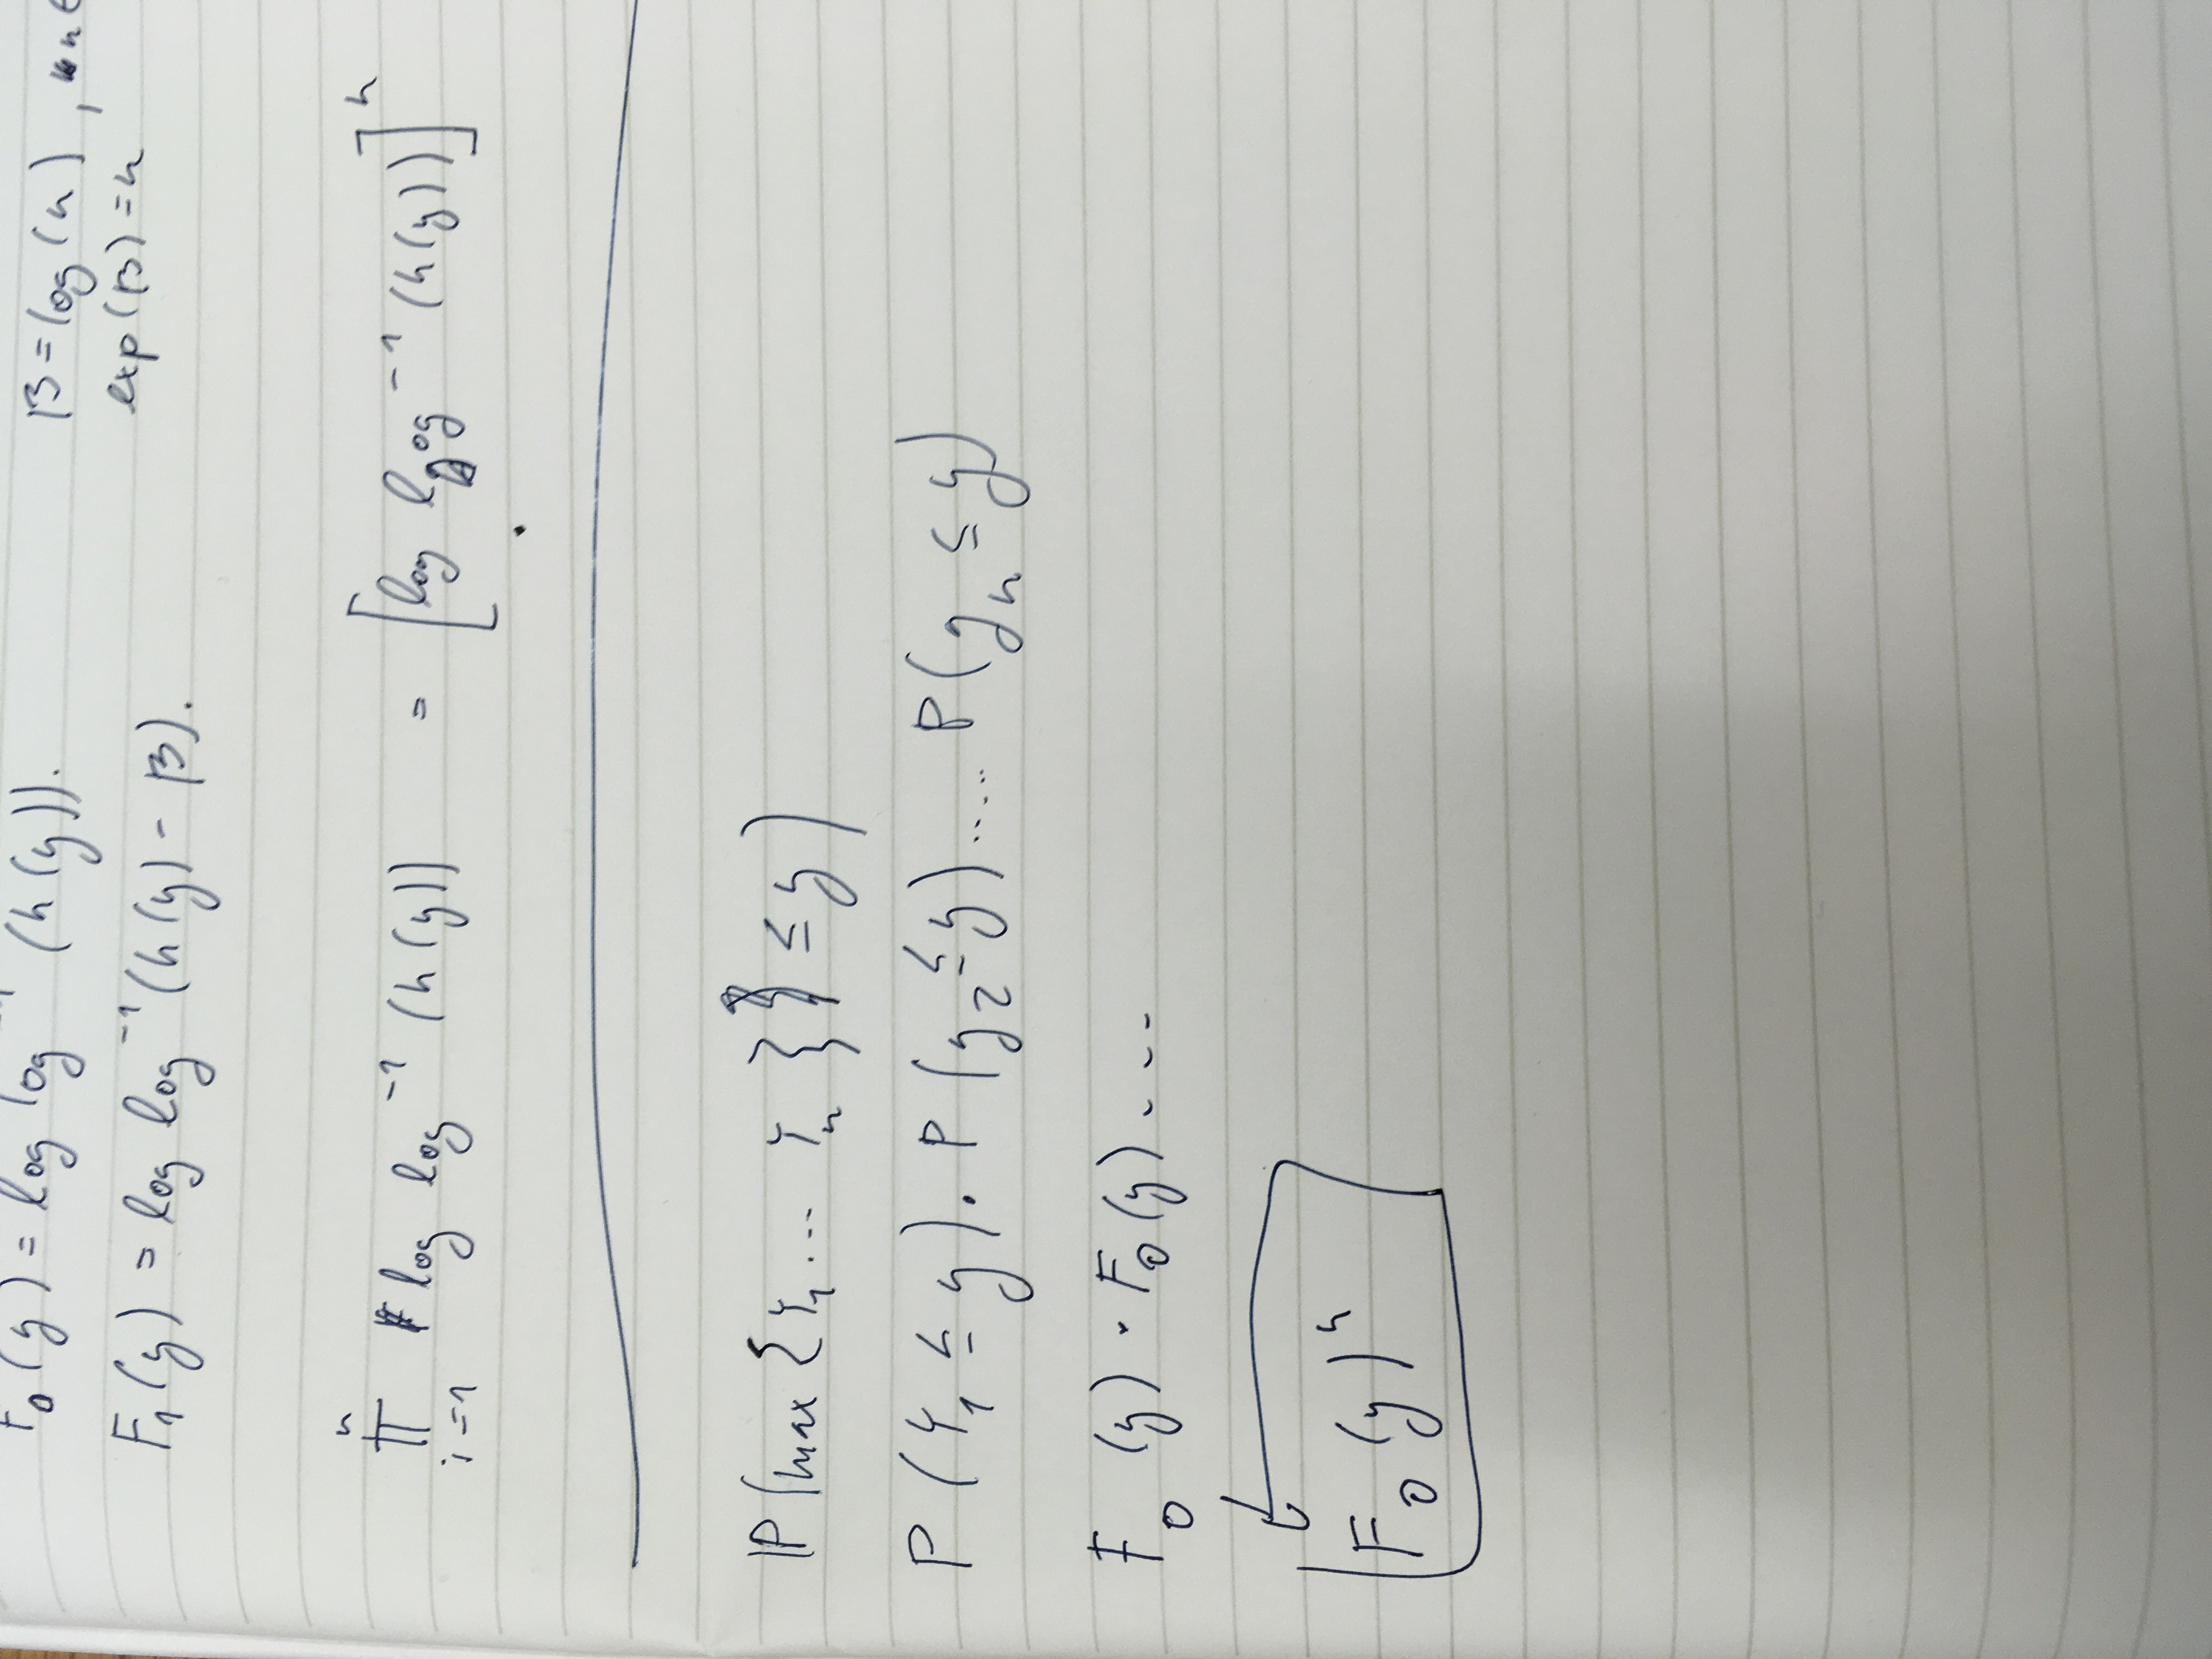 F₀(y) = log log⁻¹ (h(y)).
β = log(n), n ∈
exp(β) = n
F₁(y) = log log⁻¹ (h(y) - β).
n
∏ log log⁻¹ (h(y)) = [log log⁻¹ (h(y))]ⁿ
i=1
ℙ(max {Y₁ ... Yₙ} ≤ y)
P(Y₁ ≤ y) · P(y₂ ≤ y) ..... P(yₙ ≤ y)
F₀(y) · F₀(y) ...
F₀(y)ⁿ